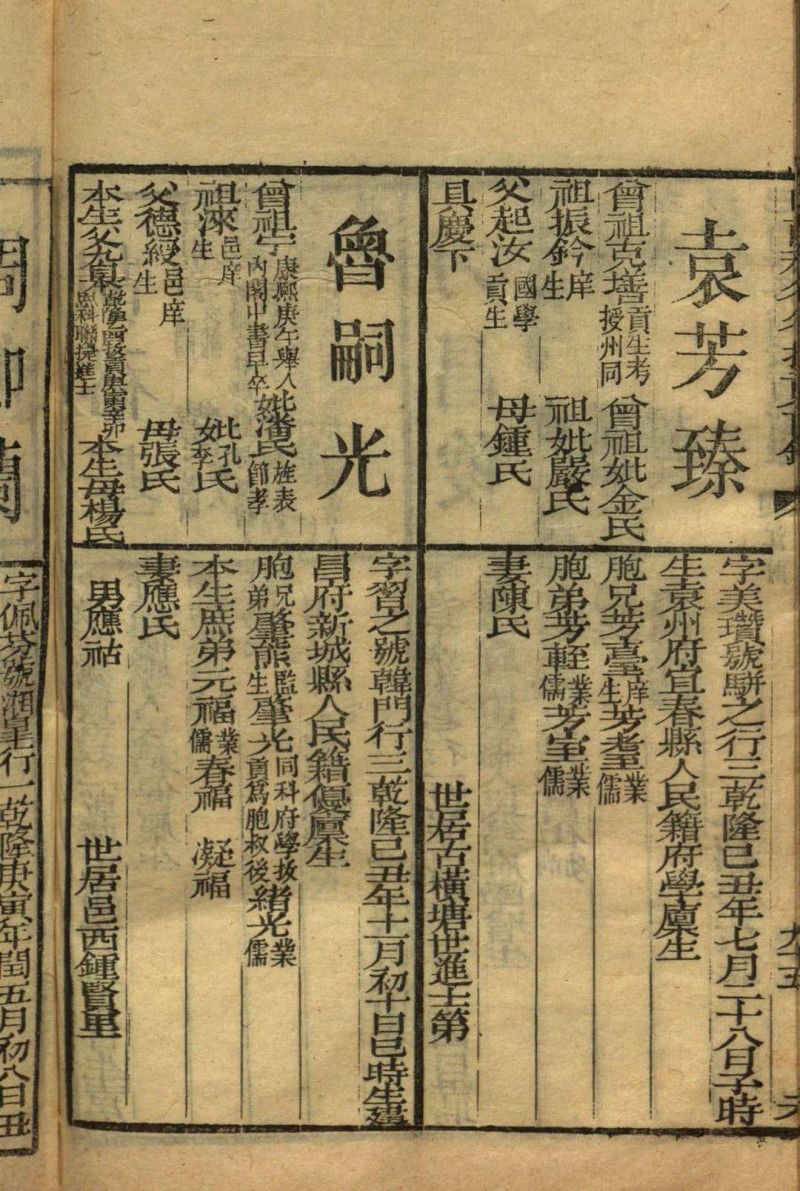 袁芳臻
曾祖克墡貢生考授州同 曾祖妣金氏
祖振鈐庠生 祖妣嚴氏
父起汝國學貢生 母鍾氏
具慶下
字美瓚號駢之行三乾隆己丑年七月二十八日子時
生袁州府宜春縣人民籍府學廩生
胞兄芳臺庠生芳耋業儒
胞弟芳軽業儒芳室業儒
妻陳氏
世居古橫塘世進士第
魯嗣光
曾祖宁康熙庚午舉人內閣中書早卒妣潘氏旌表節孝
祖淶邑庠生 妣孔李氏
父德綬邑庠生 母張氏
本生父九 本生母楊氏
字習之號韓門行三乾隆己丑年十一月初十日巳時生建
昌府新城縣人民籍優廩生
胞兄弟肇熊監生肇光同科府學拔貢為胞叔後緒光業儒
本生庶弟元福業儒春福 凝福
妻應氏
男應祜
世居邑西鍾賢里
字佩芬號湘皇行一乾隆庚寅年閏五月初八日丑